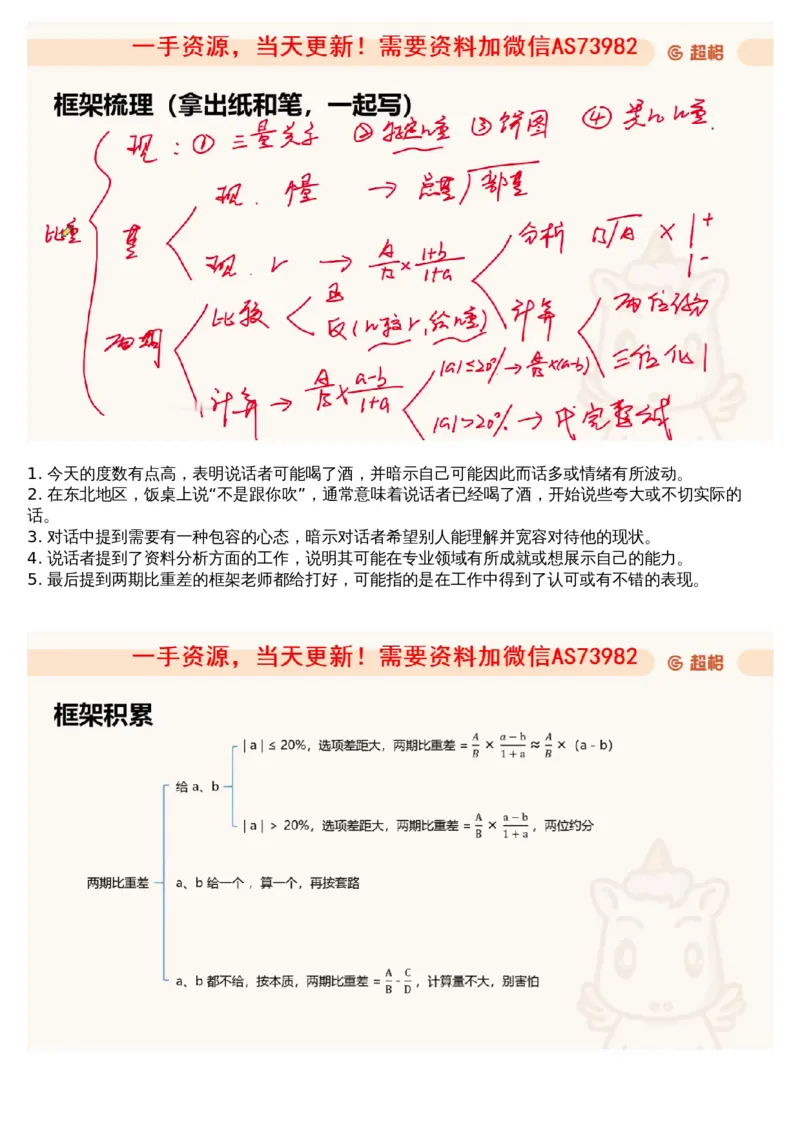 一手资源，当天更新！需要资料加微信AS73982
超格
框架梳理（拿出纸和笔，一起写）
现：① 三量关系 ② 特定比重 ③ 饼图 ④ 类比比重.
现. 增量 → 总基/部基
比重
基
现. r → A/B × (1+b)/(1+a)
分析 B/A × 1+
1-
比较
正
反(比较r,给比重)
计算
两位约分
三位化1
两期
计算 → A/B × (a-b)/(1+a)
|a|≤20% → A/B×(a-b)
|a|>20% → 代完整式
1. 今天的度数有点高，表明说话者可能喝了酒，并暗示自己可能因此而话多或情绪有所波动。
2. 在东北地区，饭桌上说“不是跟你吹”，通常意味着说话者已经喝了酒，开始说些夸大或不切实际的
话。
3. 对话中提到需要有一种包容的心态，暗示对话者希望别人能理解并宽容对待他的现状。
4. 说话者提到了资料分析方面的工作，说明其可能在专业领域有所成就或想展示自己的能力。
5. 最后提到两期比重差的框架老师都给打好，可能指的是在工作中得到了认可或有不错的表现。
一手资源，当天更新！需要资料加微信AS73982
超格
框架积累
| a | ≤ 20%，选项差距大，两期比重差 = A/B × (a－b)/(1+a) ≈ A/B ×（a - b）
给 a、b
| a | > 20%，选项差距大，两期比重差 = A/B × (a－b)/(1+a)，两位约分
两期比重差
a、b 给一个 ，算一个，再按套路
a、b 都不给，按本质，两期比重差 = A/B - C/D ，计算量不大，别害怕